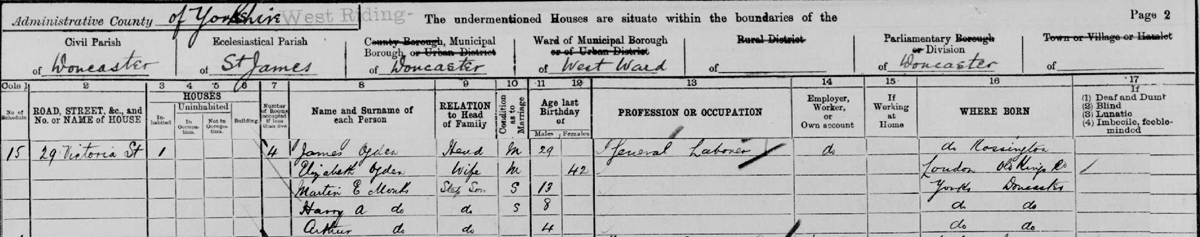 Administrative County of Yorkshire West Riding
The undermentioned Houses are situate within the boundaries of the
Page 2
Civil Parish
of Doncaster
Ecclesiastical Parish
of St James
County Borough, Municipal
Borough, or Urban District
of Doncaster
Ward of Municipal Borough
or of Urban District
of West Ward
Rural District
of
Parliamentary Borough
or Division
of Doncaster
Town or Village or Hamlet
of
Cols 1 2 3 4 5 6 7 8 9 10 11 12 13 14 15 16 17
No. of Schedule
ROAD, STREET, &c., and
No. or NAME of HOUSE
HOUSES
Inhabited
Uninhabited
In Occupation.
Not in Occupation.
Building
Number of Rooms occupied if less than five
Name and Surname of
each Person
RELATION
to Head
of Family
Condition as to Marriage
Age last
Birthday
of
Males Females
PROFESSION OR OCCUPATION
Employer,
Worker,
or
Own account
If
Working
at
Home
WHERE BORN
If
(1) Deaf and Dumb
(2) Blind
(3) Lunatic
(4) Imbecile, feeble-
minded
15 29 Victoria St 1 4 James Ogden Head M 29 General Laborer do do Rossington
Elizabeth Ogden Wife M 42 London Old Kings Rd
Martin E Monks Step Son S 13 Yorks Doncaster
Harry A do do S 8 do do
Arthur do do 4 do do